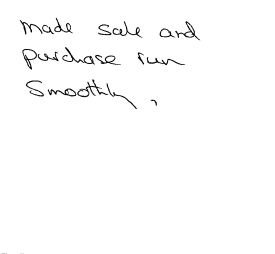 made sale and
purchase run
Smoothly,